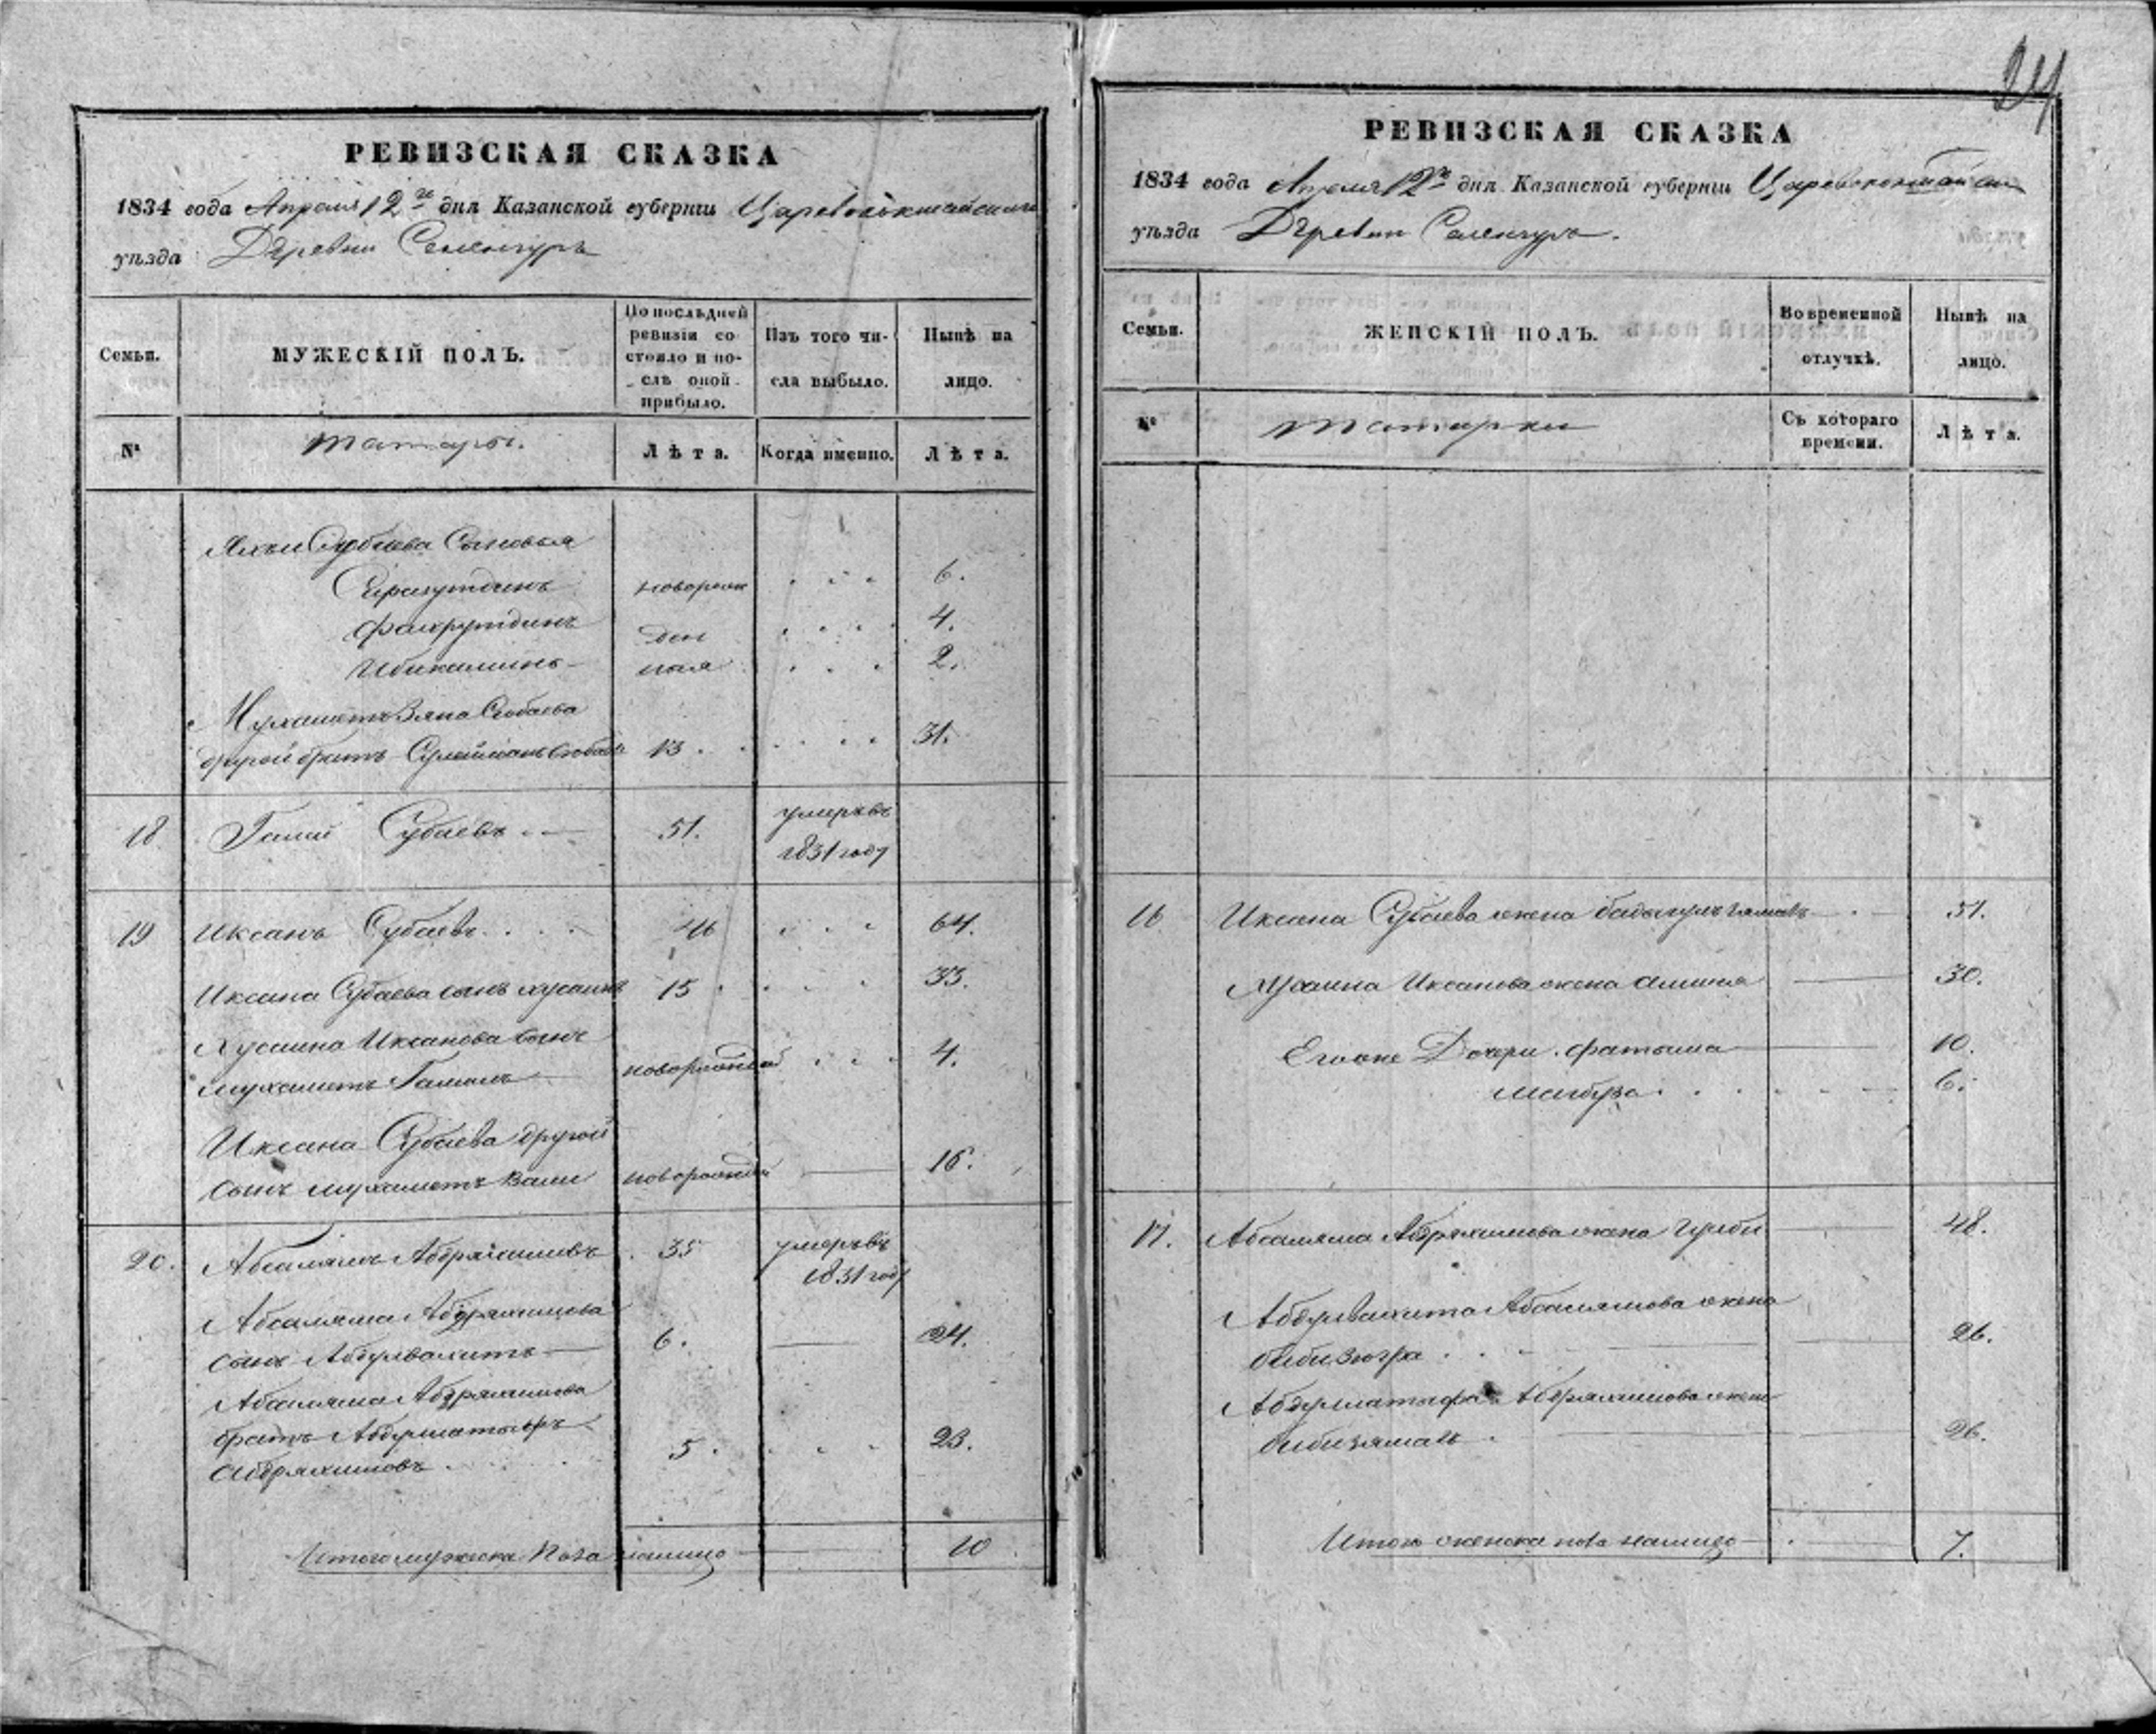 24
РЕВИЗСКАЯ СКАЗКА
1834 года Апреля 12го дня Казанской губернии Царевококшайскаго
уѣзда Деревни Селенгуръ
Семьи.
МУЖЕСКІЙ ПОЛЪ.
По послѣдней ревизіи состояло и послѣ оной прибыло.
Изъ того числа выбыло.
Нынѣ на лицо.
№
татары.
Лѣта.
Когда именно.
Лѣта.
Субаева Сыновья
новорож 6.
Фахрутдинъ ден 4.
ная 2.
Мухаметъ Зяна Субаева
другой братъ Сулейманъ Субаевъ 13. 31.
18 Галий Субаевъ 51. умеръ въ
1831 году
19 Иксанъ Субаевъ 46 64.
Иксана Субаева сынъ Хусаинъ 15 33.
Хусаина Иксанова сынъ
мухаметъ Галимъ новорожденный 4.
Иксана Субаева другой
сынъ мухаметъ Вали новорожденный 16.
20. Абсалямъ Абдряхимовъ 35 умеръ въ
1831 году
Абсаляма Абдряхимова
сынъ Абдулвахитъ 6. 24.
Абсаляма Абдряхимова
братъ Абдуллатыфъ
Абдряхимовъ 5. 23.
Итого мужеска пола налицо 10
РЕВИЗСКАЯ СКАЗКА
1834 года Апреля 12го дня Казанской губерніи Царевококшайск
уѣзда Деревни Селенгуръ.
Семьи.
ЖЕНСКІЙ ПОЛЪ.
Во временной отлучкѣ.
Нынѣ на лицо.
№
татарки
Съ котораго времени.
Лѣта.
16 Иксана Субаева жена бадыгульзямалъ 51.
Хусаина Иксанова жена 30.
Ево же Дочери фатыма 10.
6.
17. Абсаляма Абдряхимова жена 48.
Абдулвахита Абсалямова жена
бибизюгра 26.
Абдуллатыфа Абдряхимова жена
бибизямалъ 26.
Итого женска пола налицо 7.